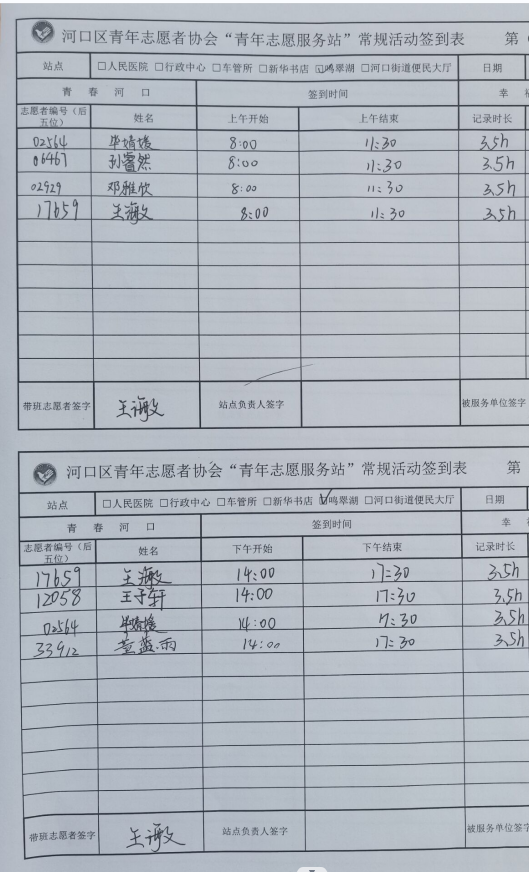 河口区青年志愿者协会“青年志愿服务站”常规活动签到表 第
站点 □人民医院 □行政中心 □车管所 □新华书店 ☑鸣翠湖 □河口街道便民大厅 日期
青 春 河 口 签到时间 幸
志愿者编号（后五位） 姓名 上午开始 上午结束 记录时长
02564 毕婧媛 8:00 11:30 3.5h
06467 孙睿然 8:00 11:30 3.5h
02929 邓雅欣 8:00 11:30 3.5h
17659 王海 8:00 11:30 3.5h
带班志愿者签字 王海 站点负责人签字 被服务单位签字
河口区青年志愿者协会“青年志愿服务站”常规活动签到表 第
站点 □人民医院 □行政中心 □车管所 □新华书店 ☑鸣翠湖 □河口街道便民大厅 日期
青 春 河 口 签到时间 幸
志愿者编号（后五位） 姓名 下午开始 下午结束 记录时长
17659 王海 14:00 17:30 3.5h
12058 王子轩 14:00 17:30 3.5h
02564 毕婧媛 14:00 17:30 3.5h
33912 雨 14:00 17:30 3.5h
带班志愿者签字 王海 站点负责人签字 被服务单位签字